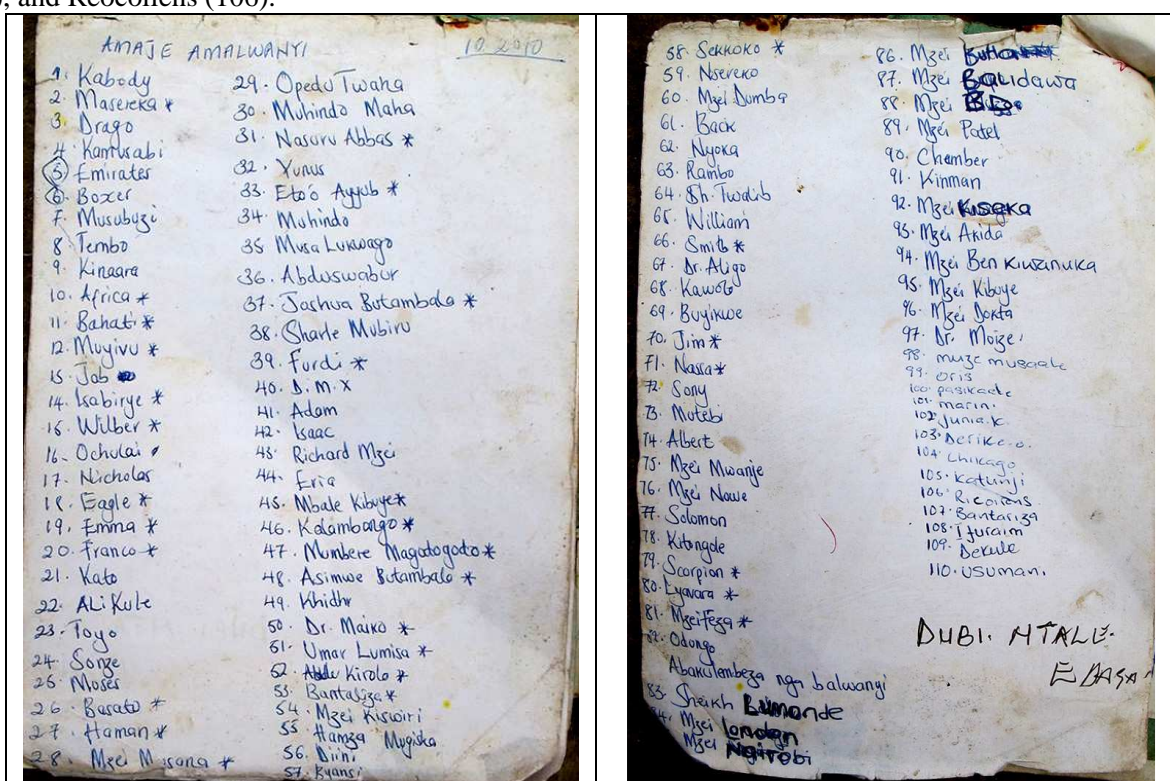 , and Reocoffens (106).
AMAJE AMALWANYI 10.2010
1. Kabody
2. Masereka *
3. Drago
4. Kamusabi
5 Emirates
6. Boxer
7. Musubuzi
8 Tembo
9. Kinaara
10. Africa *
11. Bahati *
12. Muyivu *
13. Job
14. Isabirye *
15. Wilber *
16. Ochulai
17. Nicholas
18. Eagle *
19. Emma *
20. Franco *
21. Kato
22. ALi Kule
23. Toyo
24. Songe
25 Moses
26. Barato *
27. Haman *
28. Mzei Musana *
29. Opedu Twaha
30. Muhindo Maha
31. Nasuru Abbas *
32. Yunus
33. Eto'o Ayyub *
34. Muhindo
35 Musa Lukwago
36. Abduswabur
37. Joshua Butambala *
38. Sharle Mubiru
39. Furdi *
40. D.M.X
41. Adam
42. Isaac
43. Richard Mzei
44. Eria
45. Mbale Kibuye *
46. Kalambango *
47. Mumbere Magatogoto *
48. Asimwe Butambala *
49. Khidhr
50. Dr. Maiko *
51. Umar Lumisa *
52. Kirolo *
53. Bantaliza *
54. Mzei Kiswiri
55 Hamza Mugisha
56. Diini
57. Byansi
58. Sekkoko *
59. Nsereko
60. Mzei Dumba
61. Back
62. Nyoka
63. Rambo
64. Sh. Twalib
65. William
66. Smith *
67. Dr. Aligo
68. Kawolo
69. Buyikwe
70. Jim *
71. Nassa *
72. Sony
73. Mutebi
74. Albert
75. Mzei Mwanje
76. Mzei Nowe
77. Solomon
78. Kitongole
79. Scorpion *
80. Lyavara *
81. Mzeifeza *
82. Odongo
Abakulembeza nga balwanyi
83. Sheikh Lumonde
84. Mzei London
Mzei Ngirobi
86. Mzei
87. Mzei Balidawa
88. Mzei
89. Mzei Patel
90. Chamber
91. Kinman
92. Mzei Kiseka
93. Mzei Akida
94. Mzei Ben Kiwanuka
95. Mzei Kibuye
96. Mzei Dokta
97. Dr. Moize
98. muze musaale
99. oris
100. pasikaale
101. marin.
102. junia.k.
103. Derike.o.
104. Chikago
105. Katunji
106. Ricoiens
107. Bantariza
108. Ifuraim
109. Dekule
110. usumani
DUBI. NTALE.
EBASA